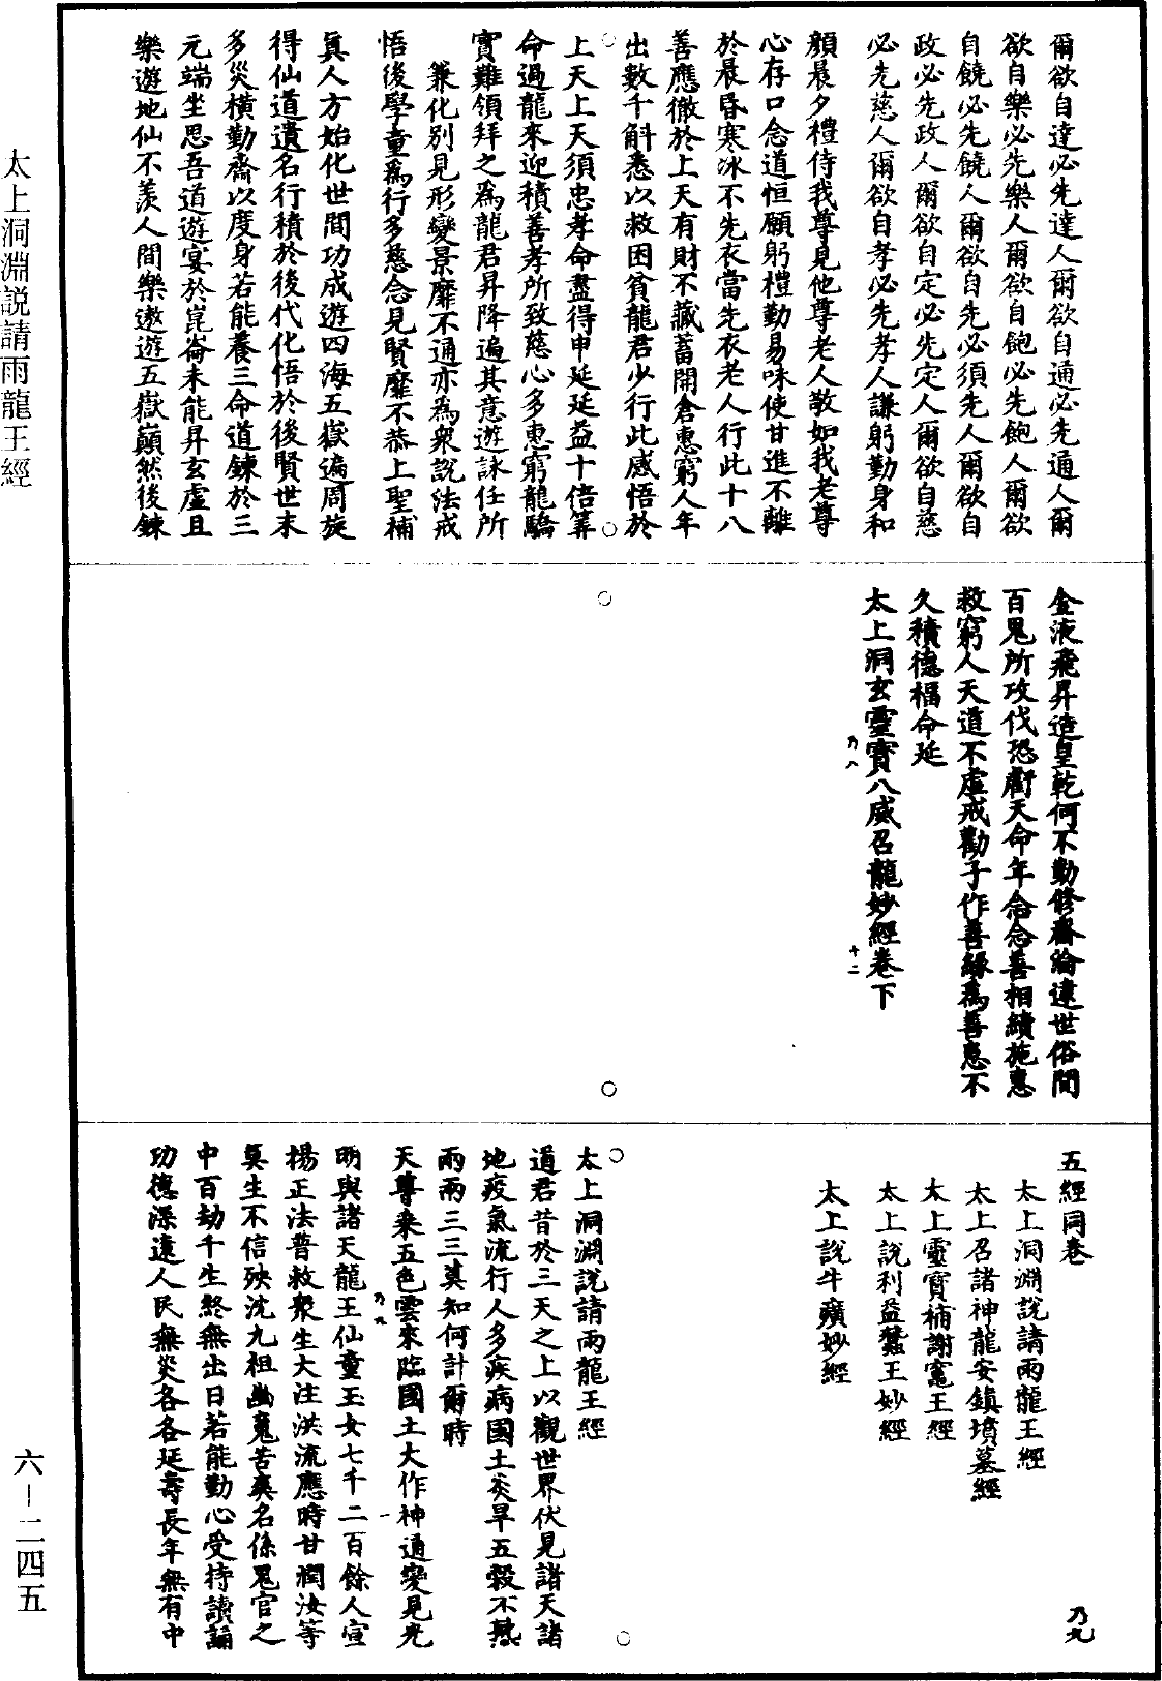 爾欲自達必先達人爾欲自通必先通人爾
欲自樂必先樂人爾欲自飽必先飽人爾欲
自饒必先饒人爾欲自先必須先人爾欲自
政必先政人爾欲自定必先定人爾欲自慈
必先慈人爾欲自孝必先孝人謙躬勤身和
顏晨夕禮侍我尊見他尊老人敬如我老尊
心存口念道恒願躬禮勤易味使甘進不離
於晨昏寒冰不先衣當先衣老人行此十八
善應徹於上天有財不藏蓄開倉惠窮人年
出數千斛悉以救困貧龍君少行此感悟於
上天上天須忠孝命盡得申延延益十倍筭
命過龍來迎積善孝所致慈心多惠窮龍驕
實難領拜之為龍君昇降遍其意遊詠任所
兼化別見形變景靡不通亦為眾說法戒
悟後學童為行多慈念見賢靡不恭上聖補
真人方始化世間功成遊四海五嶽遍周旋
得仙道遺名行積於後代化悟於後賢世末
多災橫勤齋以度身若能養三命道鍊於三
元端坐思吾道遊宴於崑崙未能昇玄虛且
樂遊地仙不羨人間樂遨遊五嶽巔然後鍊
金液飛昇造皇乾何不勤修齋淪遠世俗間
百鬼所攻伐恐虧天命年念念善相續施惠
救窮人天道不虛戒勸子作善緣為善惠不
久積德福命延
太上洞玄靈寶八威召龍妙經卷下
乃八
十二
五經同卷
乃九
太上洞淵說請雨龍王經
太上召諸神龍安鎮墳墓經
太上靈寶補謝竈王經
太上說利益蠶王妙經
太上說牛癀妙經
太上洞淵說請雨龍王經
道君昔於三天之上以觀世界伏見諸天諸
地疫氣流行人多疾病國土炎旱五穀不熟
兩兩三三莫知何計爾時
天尊乘五色雲來臨國土大作神通變見光
乃九
一
明與諸天龍王仙童玉女七千二百餘人宣
揚正法普救眾生大注洪流應時甘潤汝等
莫生不信殃沈九祖幽魂苦爽名係鬼官之
中百劫千生終無出日若能勤心受持讀誦
功德深遠人民無災各各延壽長年無有中
太上洞淵説請雨龍王經
六－二四五